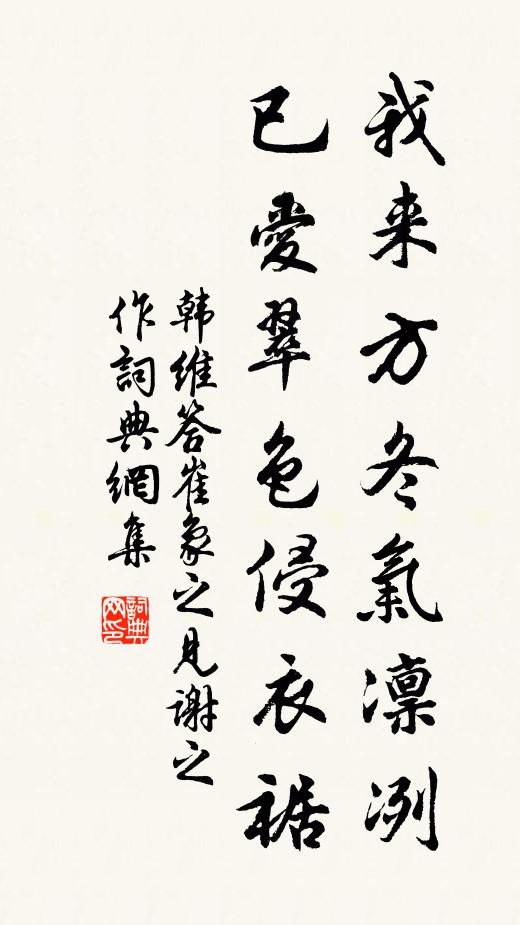 我来方冬氣凛冽
已愛翠色侵衣裾
韩维答崔象之見謝之
作詞典網集
詞典
网印